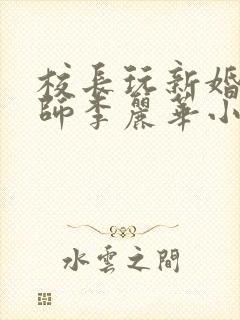 校長玩新婚
師李麗華小
水雲之間